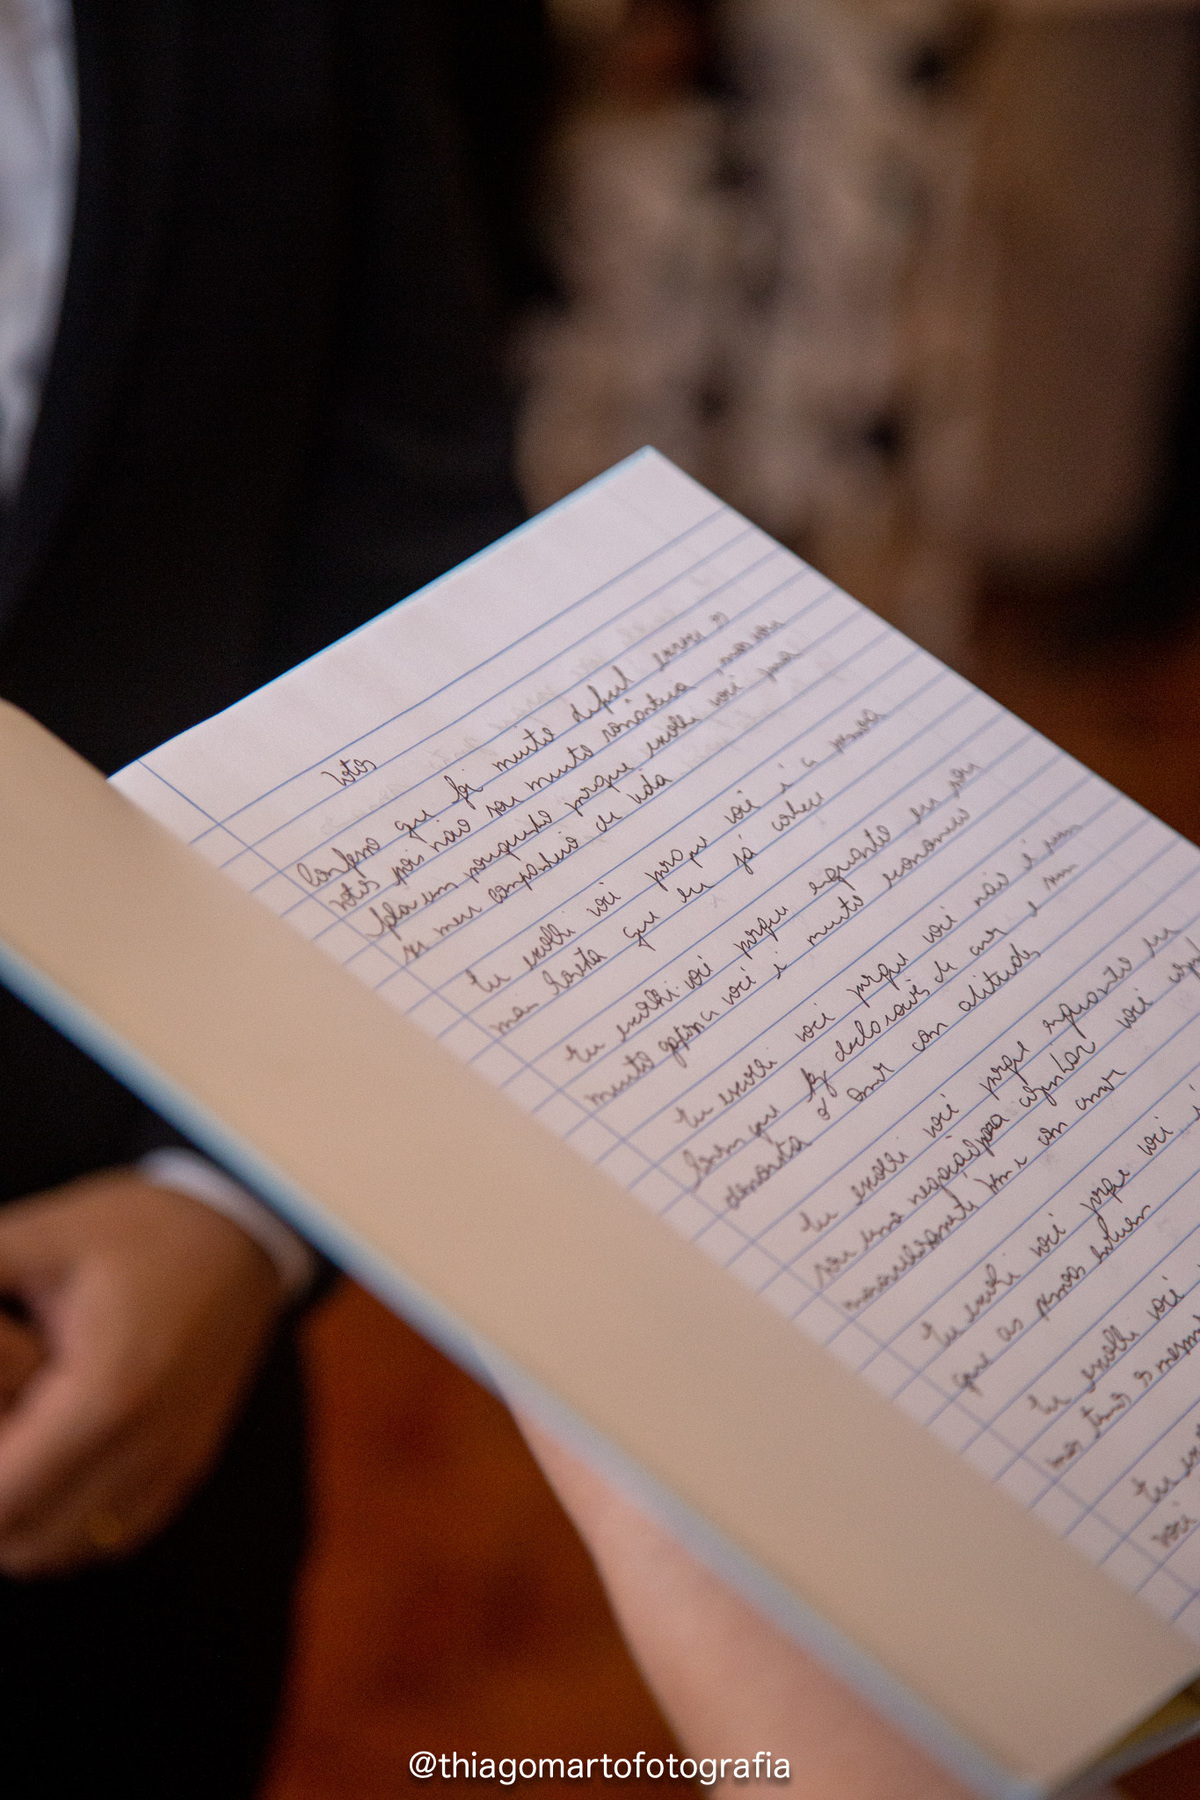 Votos
Confesso que foi muito difícil escrever os
votos pois não sou muito romântica, mas vou
falar um pouquinho porque escolhi você para
ser meu companheiro de vida
Eu escolhi você porque você é a pessoa
mais honesta que eu já conheci
Eu escolhi você porque enquanto eu sou
muito gastona você é muito econômico
Eu escolhi você porque você não é
que faz declarações de amor e sim
demonstra o amor com atitudes
Eu escolhi você porque enquanto eu
sou uma negação para cozinhar você
maravilhosamente bem e com amor
Eu escolhi você porque você
que as pessoas
Eu escolhi você
mas temos o mesmo
Eu
você
@thiagomartofotografia